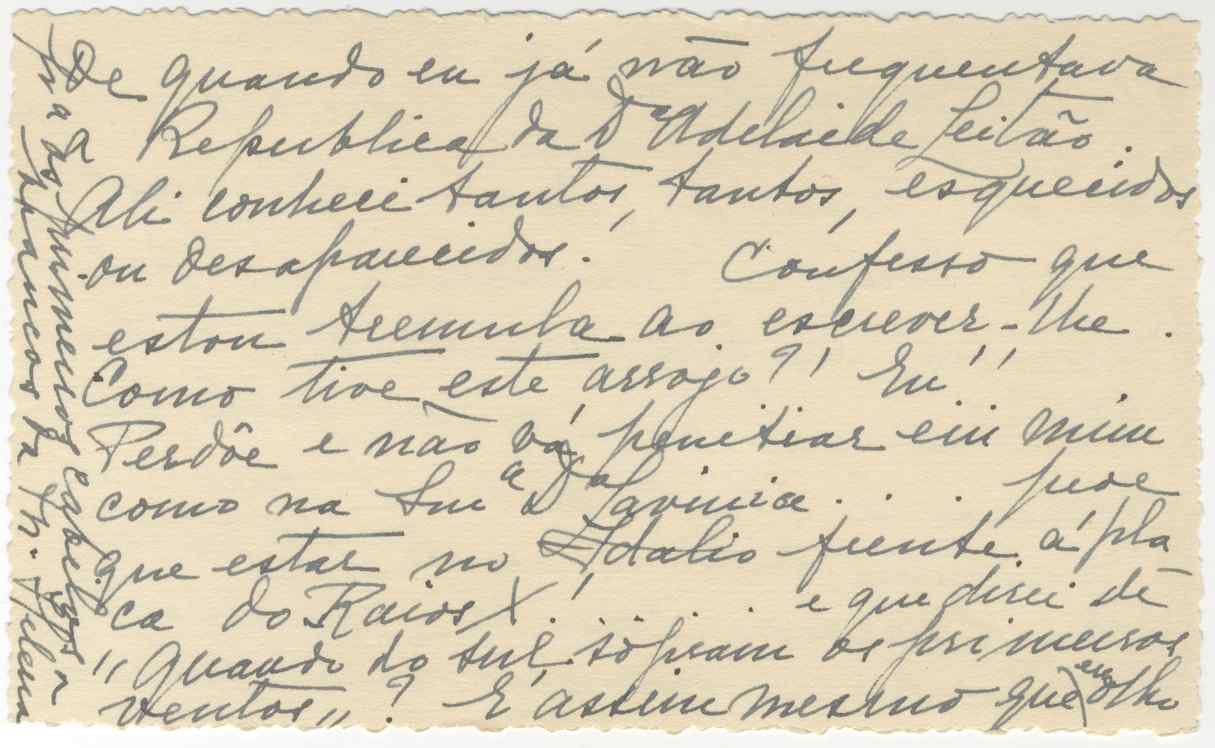 De quando eu já não frequentava
a Republica da Dª Adelaide Leitão.
Ali conheci tantos, tantos, esquecidos
ou desaparecidos. Confesso que
estou tremula ao escrever-lhe.
Como tive este arrojo?! Eu!!
Perdôe e não vá penetrar em mim
como na Suaª Dª Lavinia... pude
que estar no Idalio frente á pla
ca do Raios X!.... e que direi de
"Quando do sul sopram os primeiros
ventos"? E' assim mesmo que eu olho
pra os primeiros cabelos
brancos da M. Helena